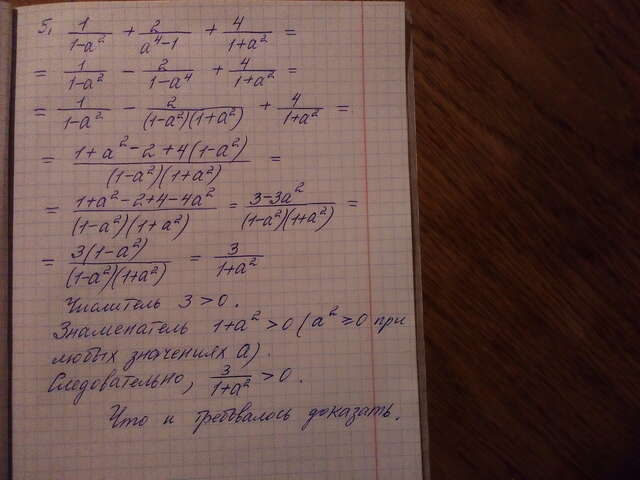 5. 1/(1-a²) + 2/(a⁴-1) + 4/(1+a²) =
= 1/(1-a²) - 2/(1-a⁴) + 4/(1+a²) =
= 1/(1-a²) - 2/((1-a²)(1+a²)) + 4/(1+a²) =
= (1+a²-2+4(1-a²))/((1-a²)(1+a²)) =
= (1+a²-2+4-4a²)/((1-a²)(1+a²)) = (3-3a²)/((1-a²)(1+a²)) =
= 3(1-a²)/((1-a²)(1+a²)) = 3/(1+a²)
Числитель 3>0.
Знаменатель 1+a²>0 (a²≥0 при
любых значениях a).
Следовательно, 3/(1+a²) >0.
Что и требовалось доказать.